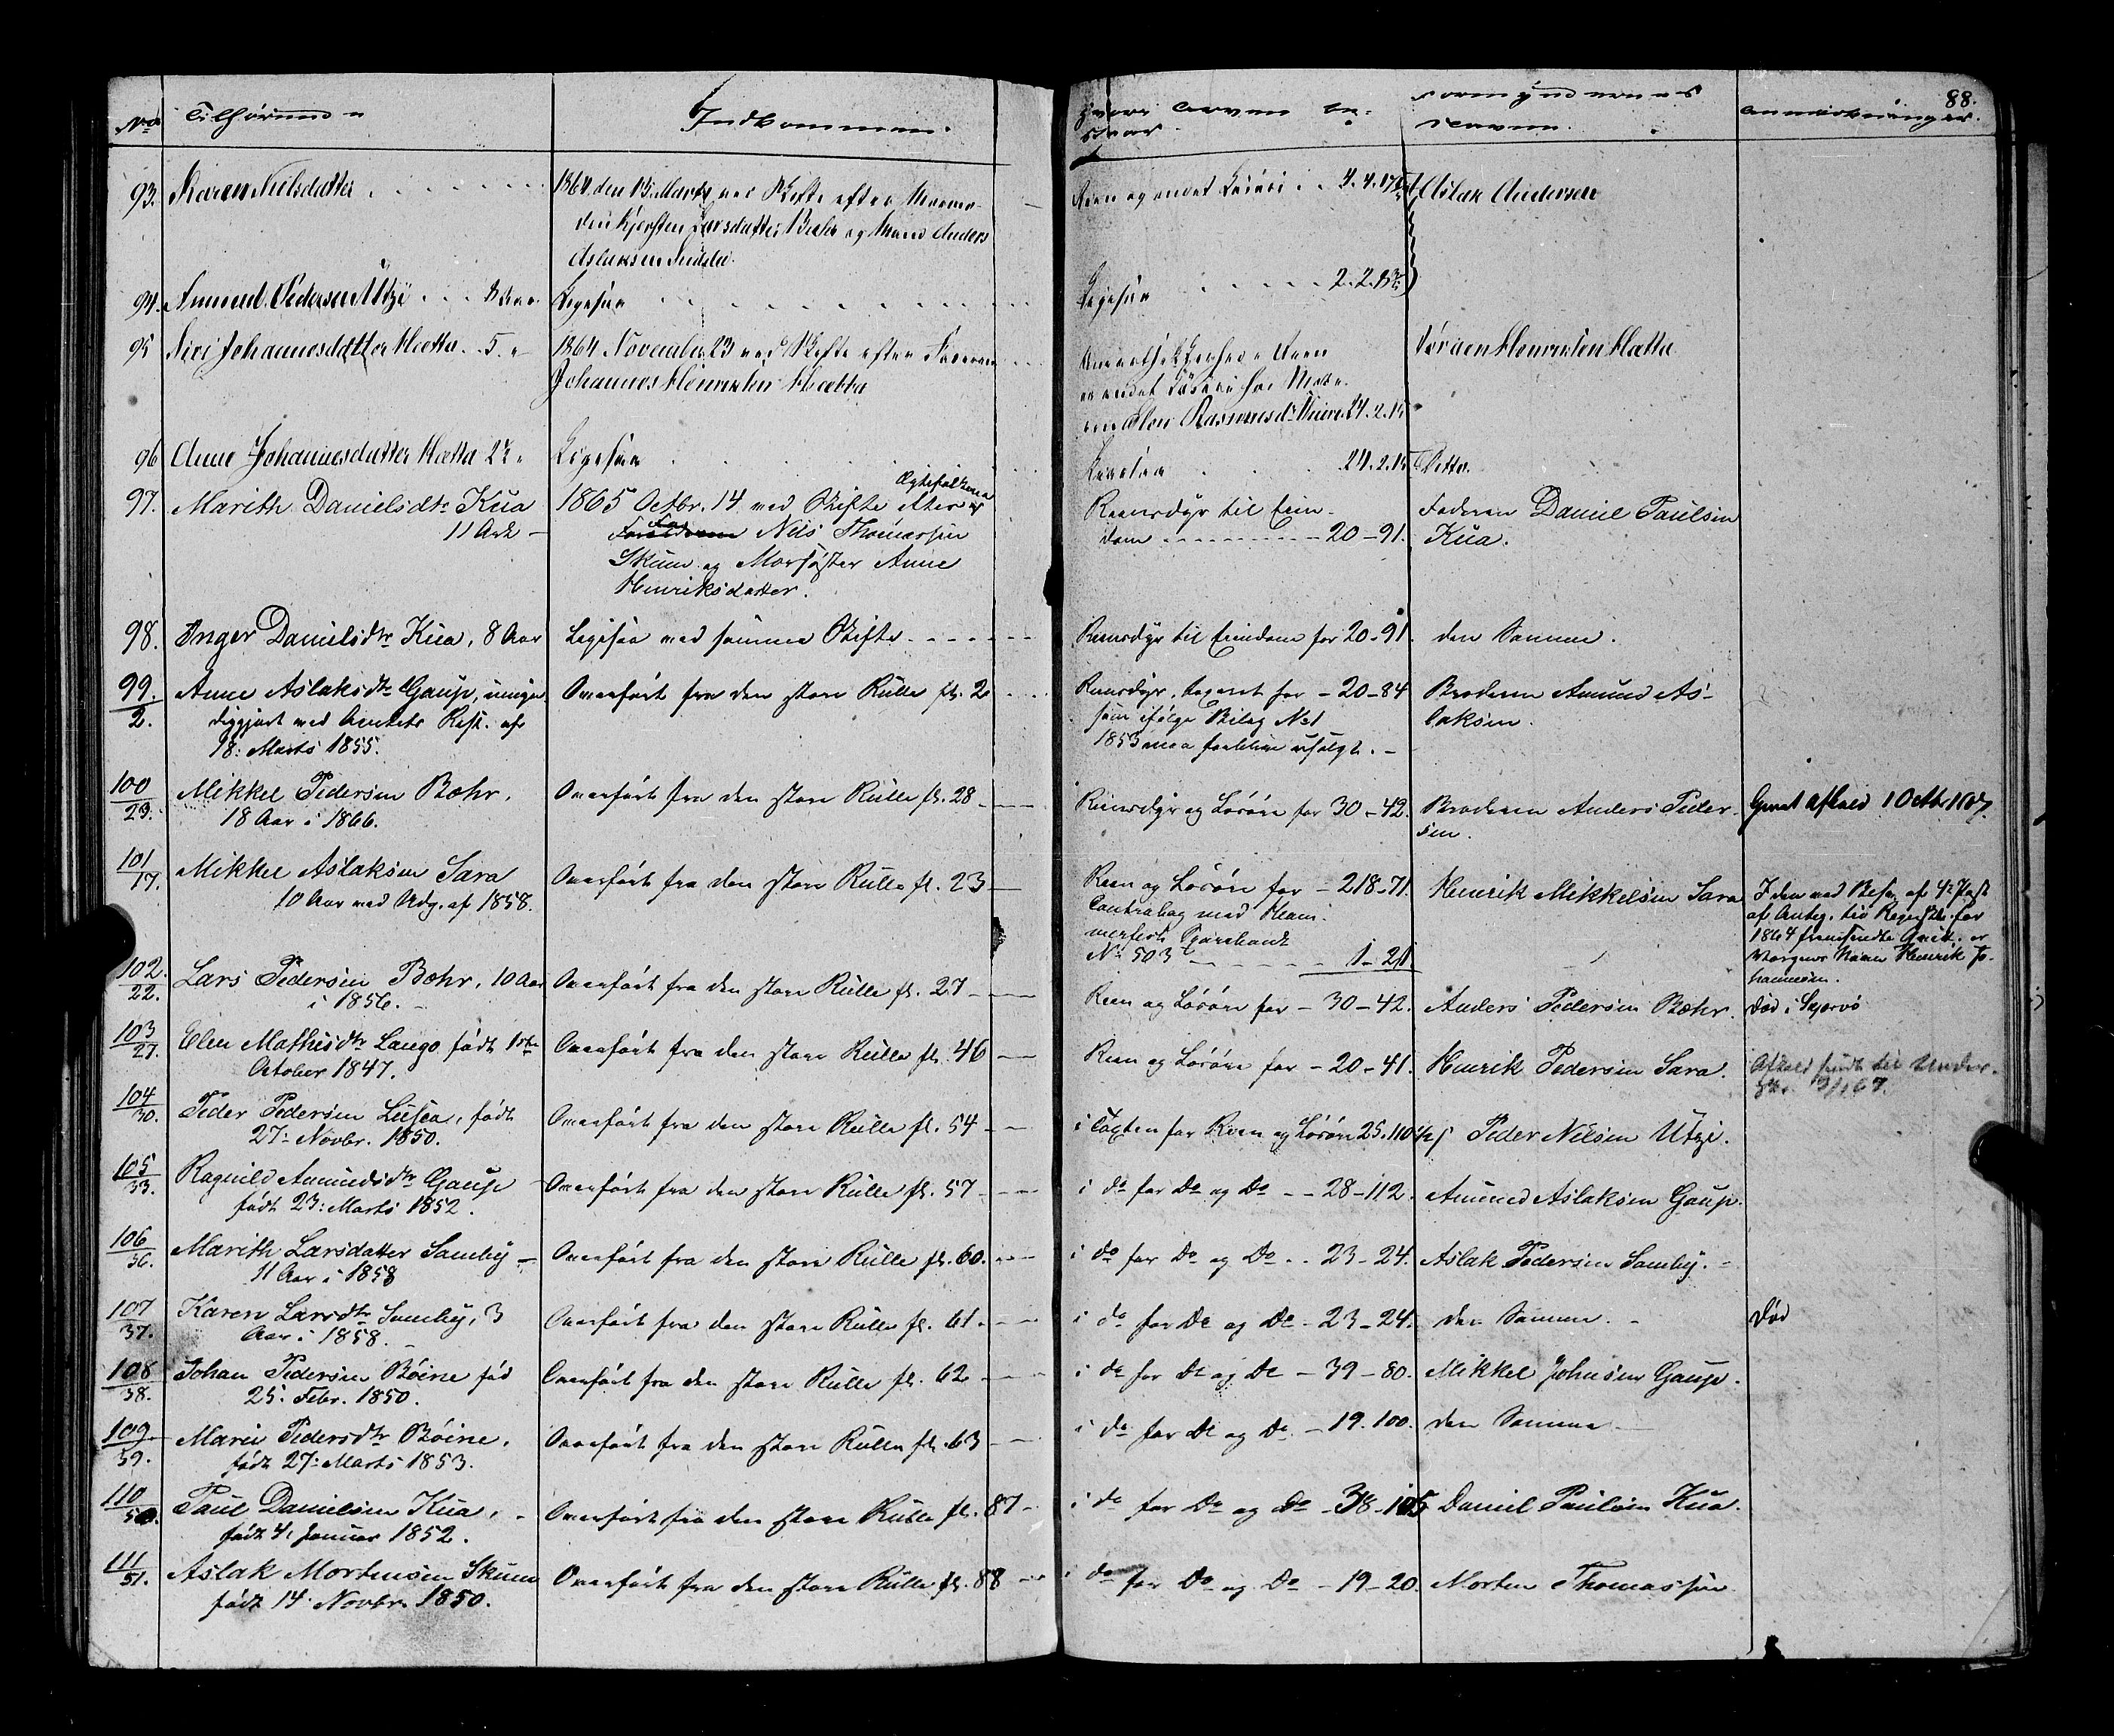 88.
No Tilhørende
Indkommen.
Hvori Arven be-
staar.
Formyndernes
Navne.
Anmærkninger.
93. Karen Nilsdatter
1864 den 15. Marts ved Skifte efter Mormo-
deren Kjersten Larsdatter Bæhr og Mand Anders
Aslaksen
Reen og andet Løsøre
Aslak Andersen
94. Amund Pedersen Utzi 8 Aar
Ligesaa
Ligesaa 2.2.
95 Siri Johannesdatter Hætta. 5. "
1864 November 23 ved Skifte efter Faderen
Johannes Henriksen Hætta
andet Løsøre hos Mode-
ren Elen Rasmusdr 24.2.15
Jørgen Henriksen Hætta
96 Anne Johannesdatter Hætta 2½ "
Ligesaa
Ligesaa 24.2.15
Ditto.
97. Marith Danielsdtr Kua
11 Aar -
1865 Octbr. 14 ved Skifte efter Ægtefolkene
Nils Thomassen
Skum og Morsøster Anne
Henriksdatter.
Reensdyr til Eien-
dom - 20 - 91.
Faderen Daniel Paulsen
Kua.
98. Inger Danielsdtr Kua, 8 Aar
Ligesaa ved samme Skifte
Reensdyr til Eiendom for 20-91.
den Samme.
99./2. Anne Aslaksdtr Gaup, umyn-
diggjort ved Amtets Resl. af
18: Marts 1855.
Overført fra den store Rulle fl. 2
Reensdyr, taxeret for - 20 - 84
som ifølge Bilag No 1
1853 maa forblive usolgt. -
Broderen Amund As-
laksen.
100/23. Mikkel Pedersen Bæhr.
18 Aar i 1866.
Overført fra den store Rulle fl. 28
Reensdyr og Løsøre for 30 - 42.
Broderen Anders Peder-
sen.
101/17. Mikkel Aslaksen Sara
10 Aar ved Udg. af 1858.
Overført fra den store Rulle fl. 23
Reen og Løsøre for - 218 - 71.
Contrabog med Ham-
merfest Sparebank
No 503 1 - 21
Henrik Mikkelsen Sara
I den ved Besv. af 4de Post
af Anteg. til Regnsk. for
1864 fremsendte Qvitt. er
Værgens Navn Henrik Jo-
hannesen.
102./22. Lars Pedersen Bæhr, 10 Aar
i 1856. -
Overført fra den store Rulle fl. 27
Reen og Løsøre for - 30 - 42.
Anders Pedersen Bæhr.
Død i Skjervø
103/27. Elen Mathisdtr Lango, født 1ste
October 1847.
Overført fra den store Rulle fl. 46
Reen og Løsøre for - 20 - 41.
Henrik Pedersen Sara.
104/30. Peder Pedersen Lussa, født
27: Novbr. 1850.
Overført fra den store Rulle fl. 54
i Boen for Reen og Løsøre 25. 110½
Peder Nilsen Utzi.
105/33. Ragnild Amundsdtr Gaup
født 23: Marts 1852.
Overført fra den store Rulle fl. 57
i do for Do og Do - 28 - 112.
Amund Aslaksen Gaup.
106/36. Marith Larsdatter Somby -
11 Aar i 1858
Overført fra den store Rulle fl. 60.
i do for Do og Do - 23 - 24.
Aslak Pedersen Somby. -
107/37. Karen Larsdtr Somby, 3
Aar i 1858. -
Overført fra den store Rulle fl. 61.
i do for Do og Do - 23 - 24.
den Samme. -
Død
108/38. Johan Pedersen Bøine fød
25: Febr. 1850.
Overført fra den store Rulle fl. 62
i do for Do og Do - 39 - 80.
Mikkel Johnsen Gaup.
109/39. Marit Pedersdtr Bøine.
født 27: Marts 1853.
Overført fra den store Rulle fl. 63
i do for Do og Do - 19. 100.
den Samme
110/50. Paul Danielsen Kua,
født 4. Januar 1852.
Overført fra den store Rulle fl. 87
i do for Do og Do - 38 - 105
Daniel Paulsen Kua.
111/51. Aslak Mortensen Skum
født 14. Novbr. 1850.
Overført fra den store Rulle fl. 88
i do for Do og Do - 19 - 20.
Morten Thomassen